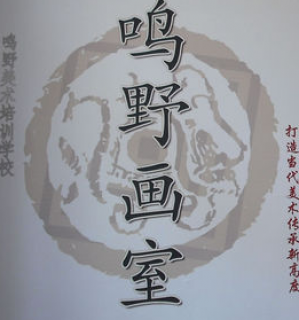 鸣野美术培训学校
鸣野画室
打造当代美术传承新高度